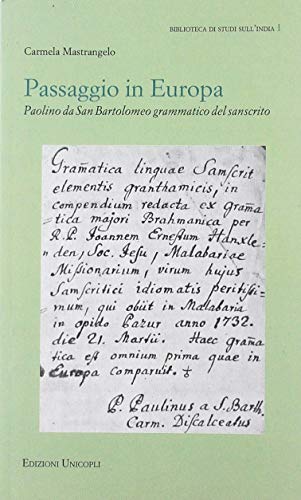 BIBLIOTECA DI STUDI SULL'INDIA 1
Carmela Mastrangelo
Passaggio in Europa
Paolino da San Bartolomeo grammatico del sanscrito
Gram̃atica linguae Samscrit
elementis granthamicis, in
compendium redacta ex gram̃a
tica majori Brahmanica per
R. P. Joannem Ernestum Hanxle-
den, Soc. Jesu, Malabariae
Missionarium, virum hujus
Samscritici idiomatis peritissi-
mum, qui obiit in Malabaria
in opido Pazur anno 1732.
die 21. Martii. Haec gram̃a
tica est omnium prima quae in
Europa comparuit.
P. Paulinus a S. Barth.
Carm. Discalceatus
EDIZIONI UNICOPLI